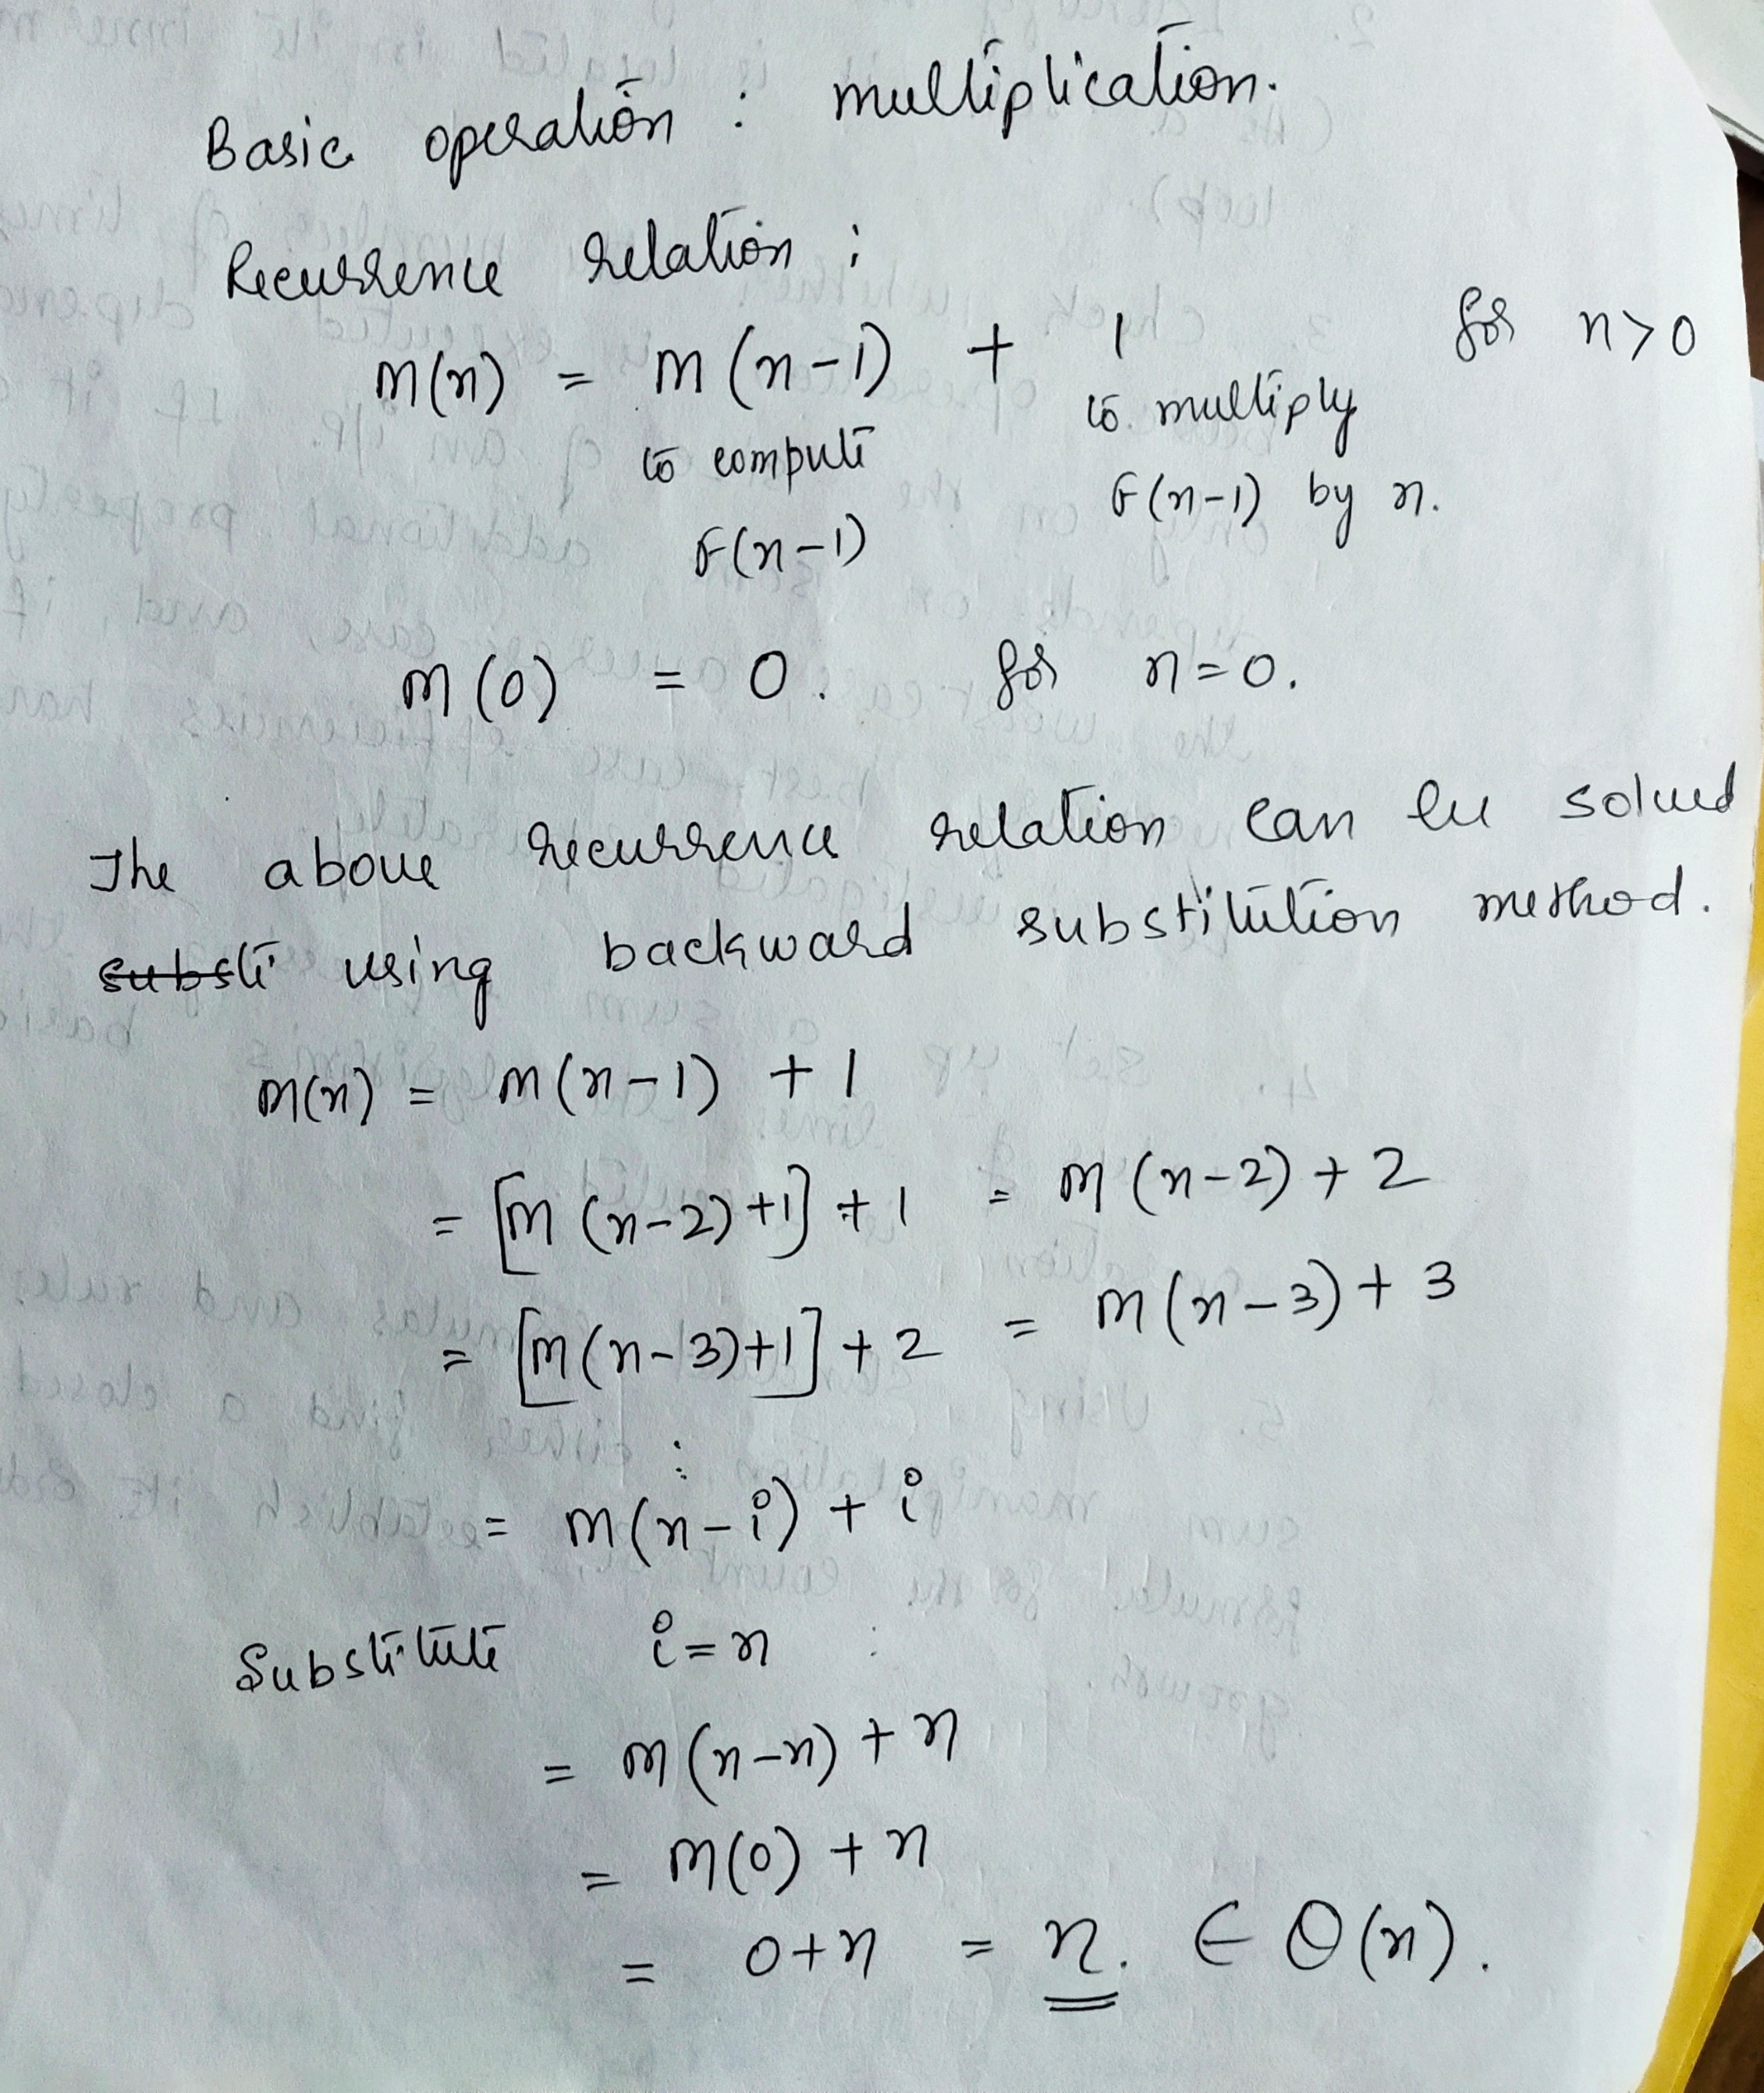 Basic operation : multiplication.
Recurrence relation :
M(n) = M(n-1) + 1 for n>0
to compute to multiply
F(n-1) F(n-1) by n.
M(0) = 0. for n=0.
The above recurrence relation can be solved
substi using backward substitution method.
M(n) = M(n-1) + 1
= [M(n-2)+1] + 1 = M(n-2) + 2
= [M(n-3)+1] + 2 = M(n-3) + 3
⋮
= M(n-i) + i
Substitute i=n
= M(n-n) + n
= M(0) + n
= 0+n = n. ∈ Θ(n).